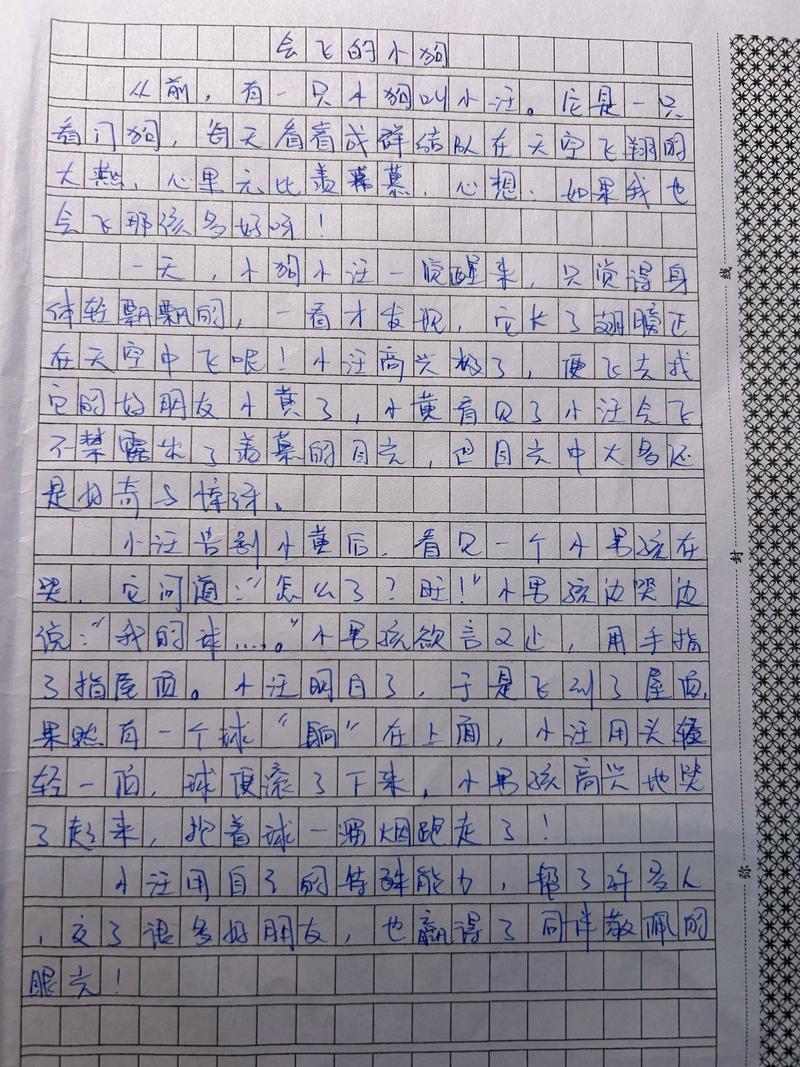 会飞的小狗
从前，有一只小狗叫小汪。它是一只
看门狗，每天看着成群结队在天空飞翔的
大燕，心里无比羡慕，心想：如果我也
会飞那该多好呀！
一天，小狗小汪一觉醒来，只觉得身
体轻飘飘的，一看才发现，它长了翅膀正
在天空中飞呢！小汪高兴极了，便飞去找
它的好朋友小黄了，小黄看见了小汪会飞
不禁露出了羡慕的目光，但目光中大多还
是好奇与惊讶。
小汪告别小黄后，看见一个小男孩在
哭，它问道：“怎么了？旺！”小男孩边哭边
说：“我的球……。”小男孩欲言又止，用手指
了指屋顶。小汪明白了，于是飞到了屋面，
果然有一个球“躺”在上面，小汪用头轻
轻一拍，球便滚了下来，小男孩高兴地哭
了起来，抱着球一溜烟跑走了！
小汪用自己的特殊能力，帮了许多人
，交了诸多好朋友，也赢得了同伴敬佩的
眼光！
线
封
弥